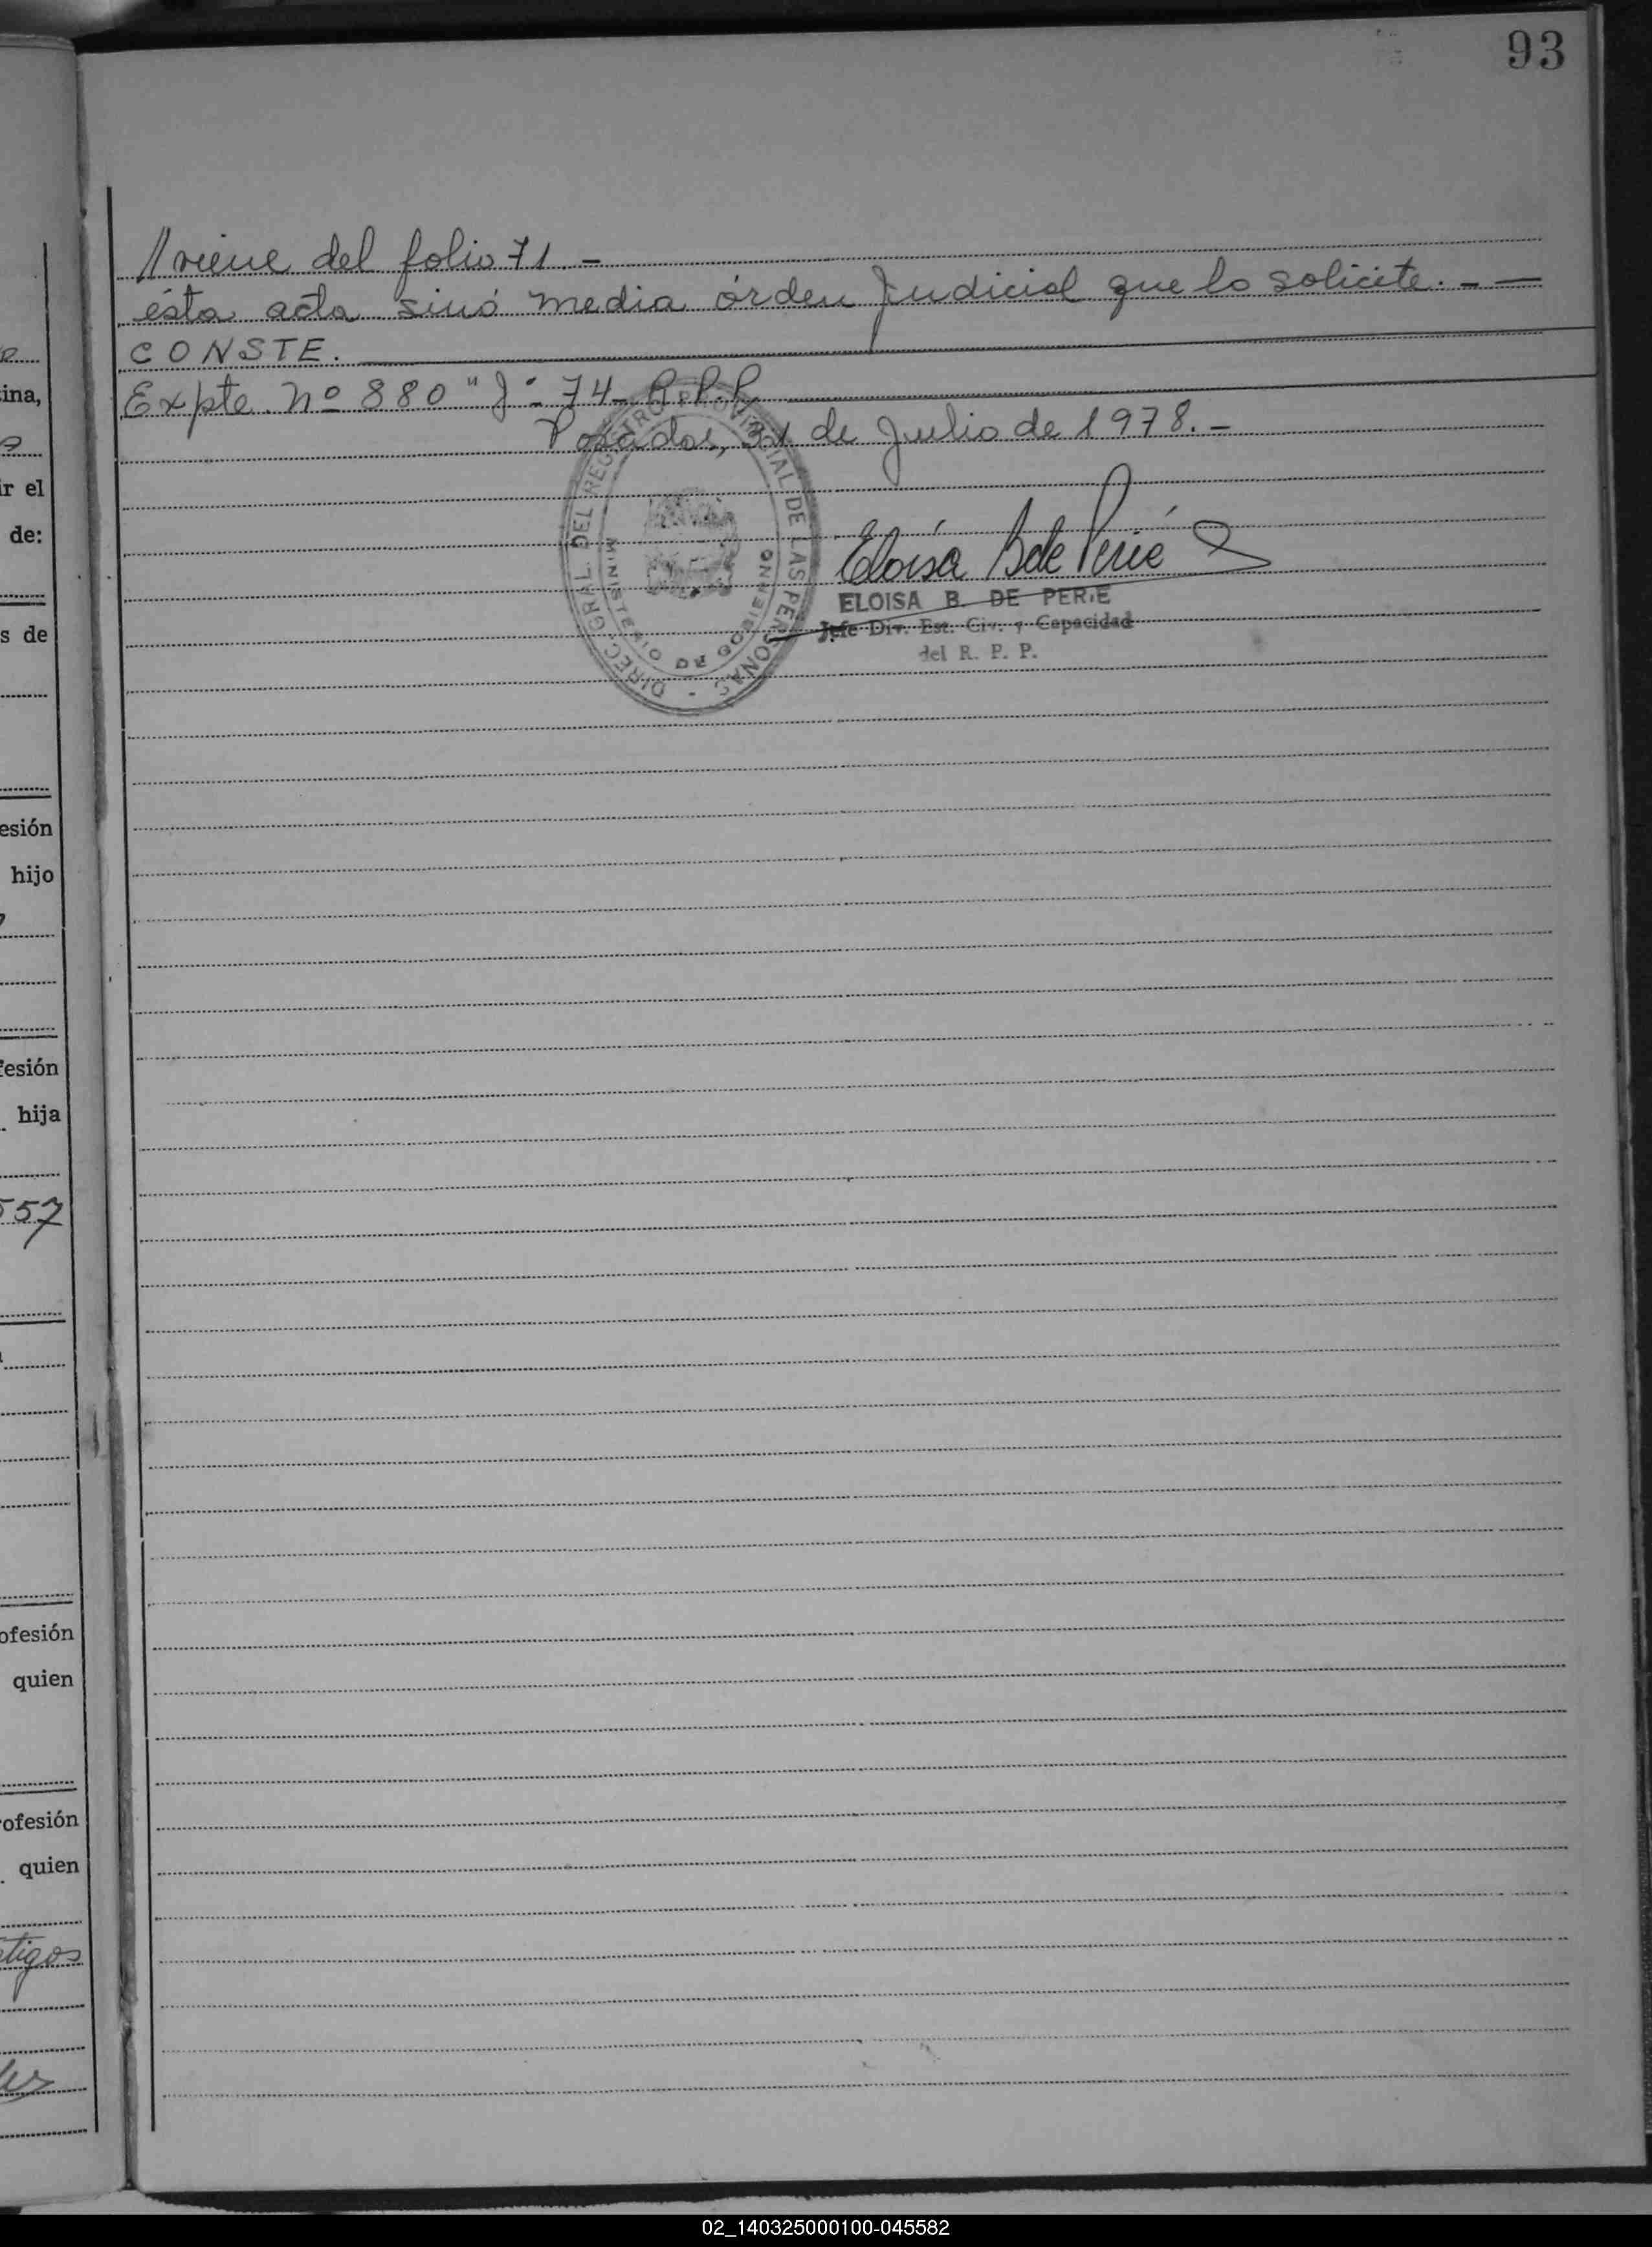 93
//viene del folio 71.-
ésta acta sinó media órden Judicial que lo solicite. - —
CONSTE.
Expte. Nº 880 "J"- 74- R.P.P.
Posadas, 31 de Julio de 1978.-
DIREC. GRAL. DEL REGISTRO PROVINCIAL DE LAS PERSONAS -
MINISTERIO DE GOBIERNO
Eloísa B de Perié
ELOISA B. DE PERIE
Jefe Div. Est. Civ. y Capacidad
del R. P. P.
ina,
ir el
de:
s de
esión
hijo
fesión
hija
557
ofesión
quien
rofesión
quien
stigos
02_140325000100-045582